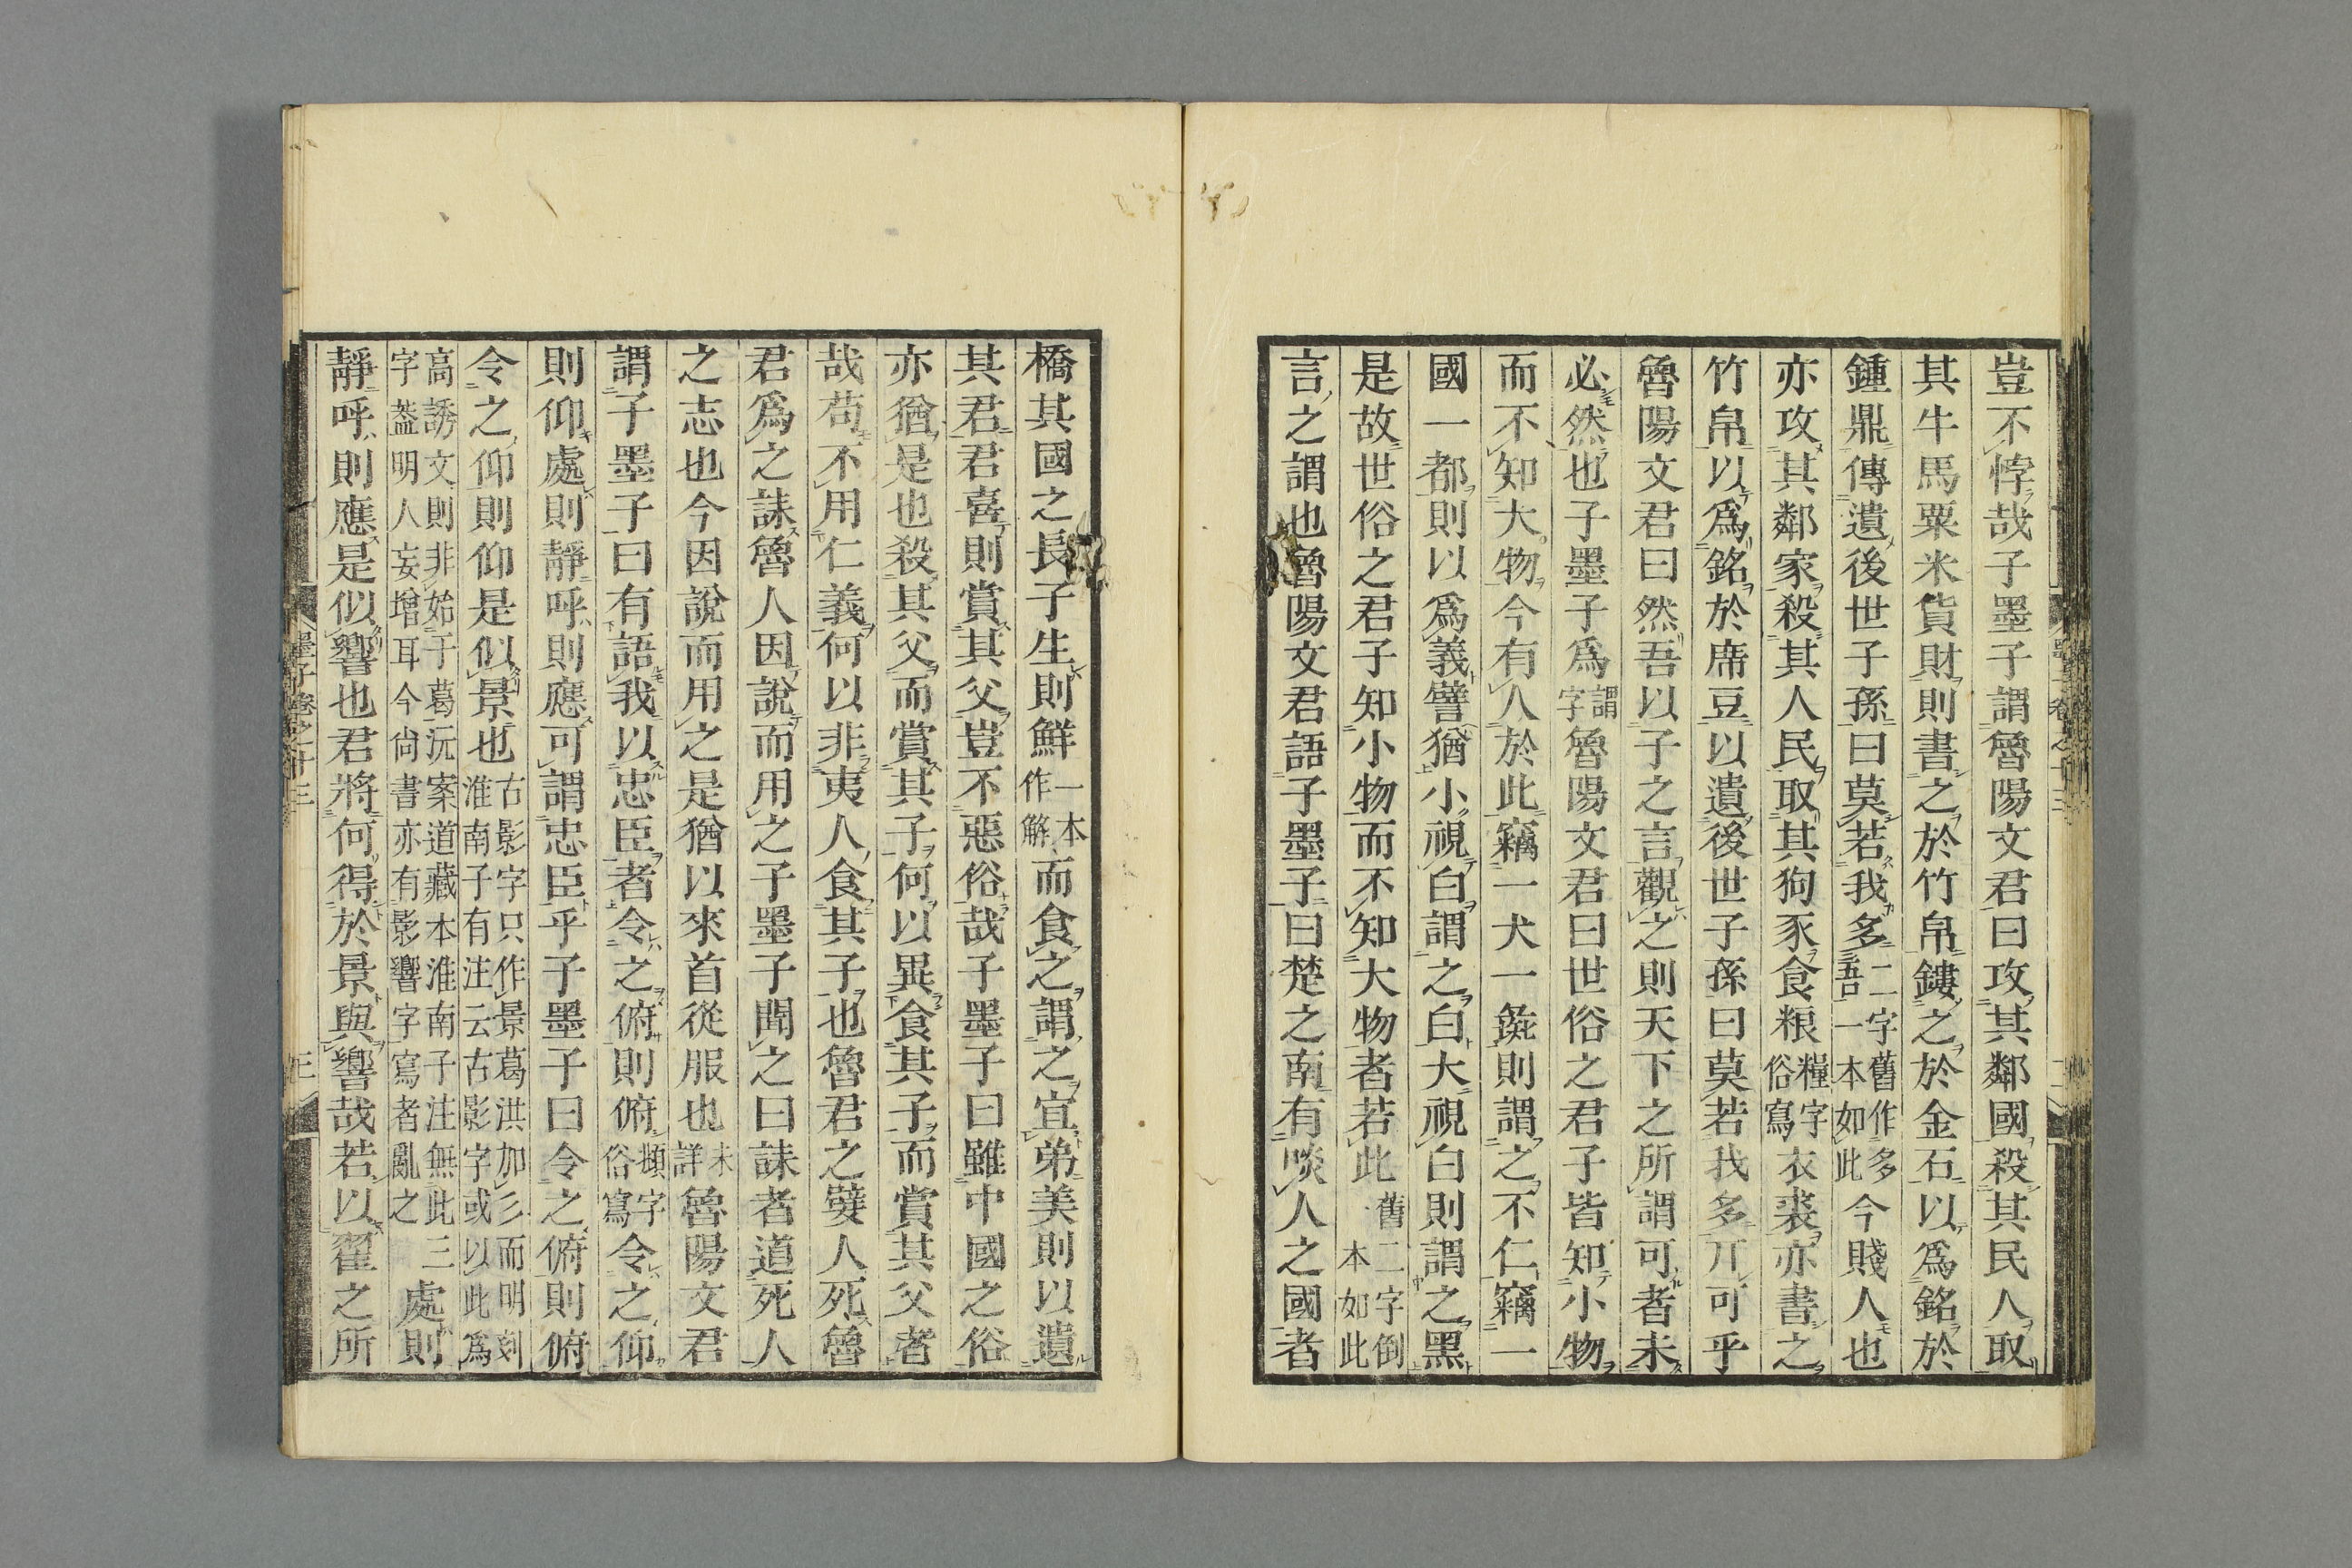 豈不悖哉子墨子謂魯陽文君曰攻其鄰國殺其民人取
其牛馬粟米貨財則書之於竹帛鏤之於金石以爲銘於
鍾鼎傳遺後世子孫曰莫若我多二字舊作多吾一本如此今賤人也
亦攻其鄰家殺其人民取其狗豕食粮糧字俗寫衣裘亦書之
竹帛以爲銘於席豆以遺後世子孫曰莫若我多亓可乎
魯陽文君曰然吾以子之言觀之則天下之所謂可者未
必然也子墨子爲謂字魯陽文君曰世俗之君子皆知小物
而不知大物今有人於此竊一犬一彘則謂之不仁竊一
國一都則以爲義譬猶小視白謂之白大視白則謂之黑
是故世俗之君子知小物而不知大物者若此舊二字倒一本如此
言之謂也魯陽文君語子墨子曰楚之南有啖人之國者
橋其國之長子生則鮮一本作解而食之謂之宜弟美則以遺
其君君喜則賞其父豈不惡俗哉子墨子曰雖中國之俗
亦猶是也殺其父而賞其子何以異食其子而賞其父者
哉苟不用仁義何以非夷人食其子也魯君之嬖人死魯
君爲之誄魯人因說而用之子墨子聞之曰誄者道死人
之志也今因說而用之是猶以來首從服也未詳魯陽文君
謂子墨子曰有語我以忠臣者令之俯則俯頫字俗寫令之仰
則仰處則靜呼則應可謂忠臣乎子墨子曰令之俯則俯
令之仰則仰是似景也古影字只作景葛洪加彡而明刻淮南子有注云古影字或以此爲
高誘文則非始于葛沅案道藏本淮南子注無此三字葢明人妄增耳今尙書亦有影響字寫者亂之處則
靜呼則應是似響也君將何得於景與響哉若以翟之所
墨子卷之十三
三